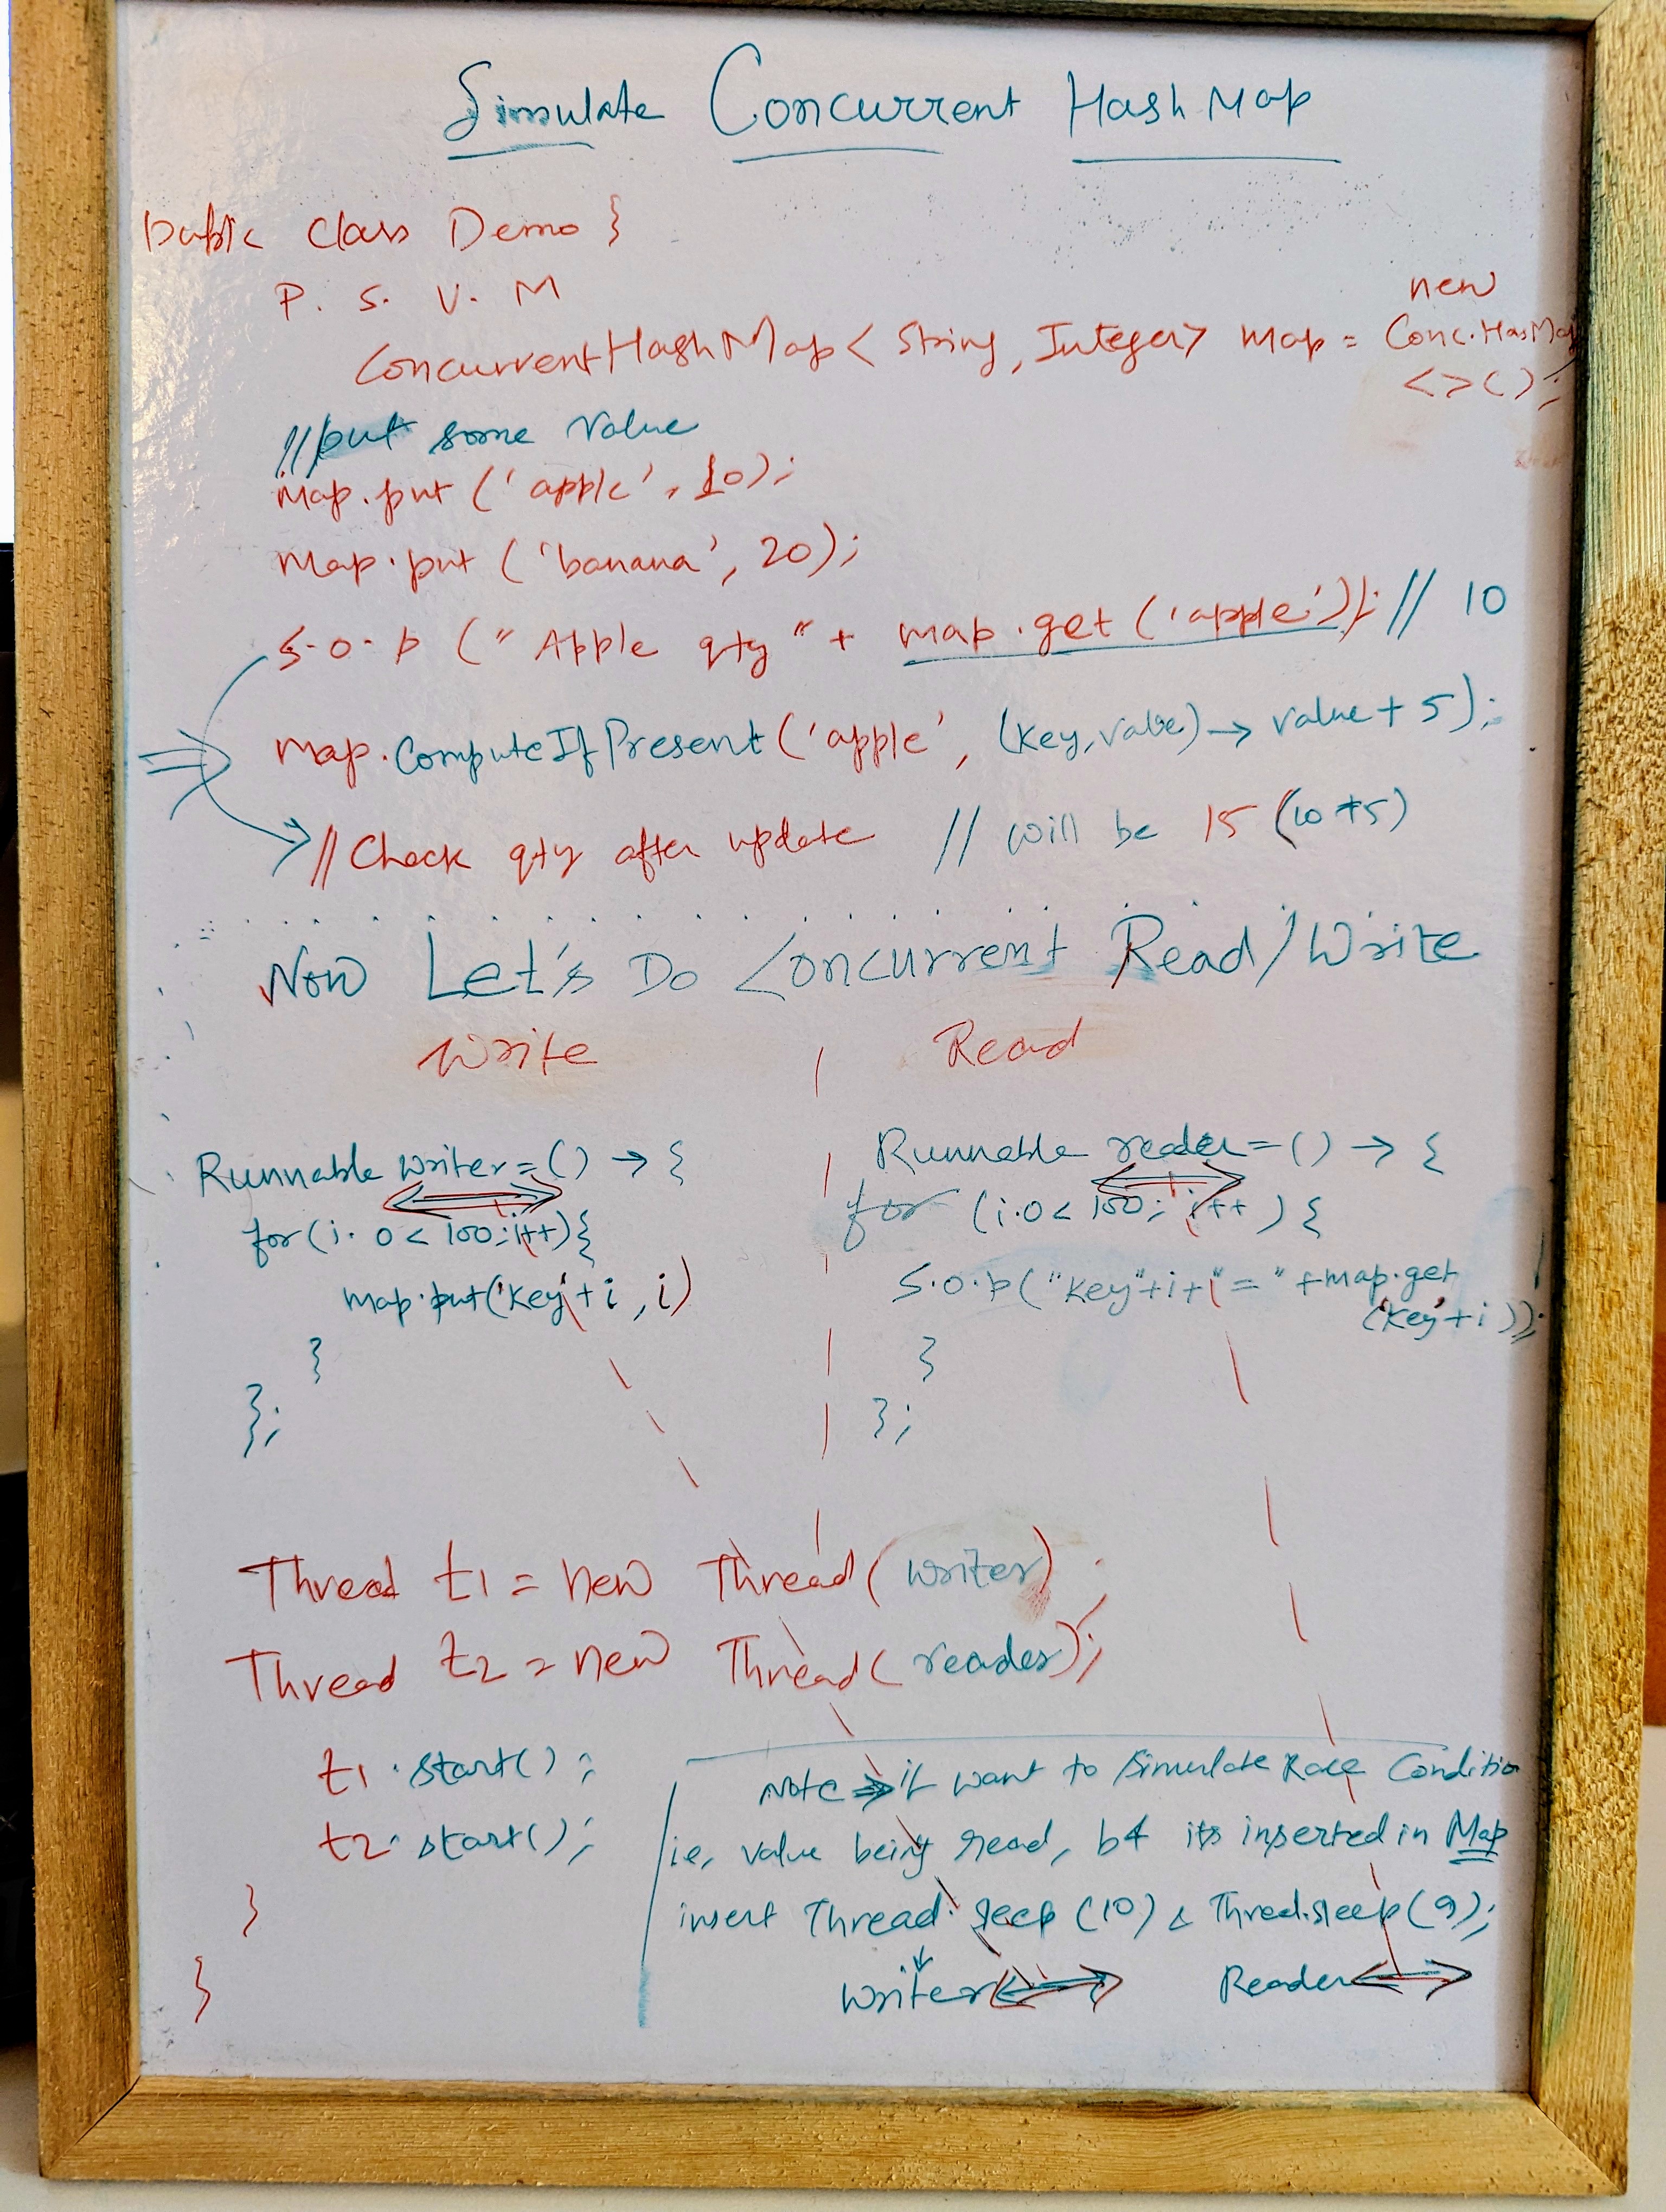 Simulate Concurrent HashMap
public class Demo }
P. S. V. M
new
ConcurrentHashMap< String, Integer> map = Conc.HasMap
<>();
//put some value
Map.put ('apple', 10);
map.put ('banana', 20);
S.o.p ("Apple qty "+ map.get ('apple')); // 10
map.ComputeIfPresent('apple', (key,value) → value + 5);
//Check qty after update // will be 15 (10+5)
Now Let's Do Concurrent Read/Write
Write
Read
Runnable writer=() → {
for(i. 0 < 100; i++){
map.put('key'+i, i)
}
};
Runnable reader=() → {
for (i.0< 100; i++ ) {
S.o.p("key"+i+"=" +map.get
('key'+i));
}
};
Thread t1 = new Thread(writer);
Thread t2 = new Thread(reader);
t1.start();
t2.start();
}
}
Note ⇒ if want to simulate Race Condition
ie, value being read, b4 its inserted in Map
insert Thread.sleep (10) & Thred.sleep(9);
Writer Reader